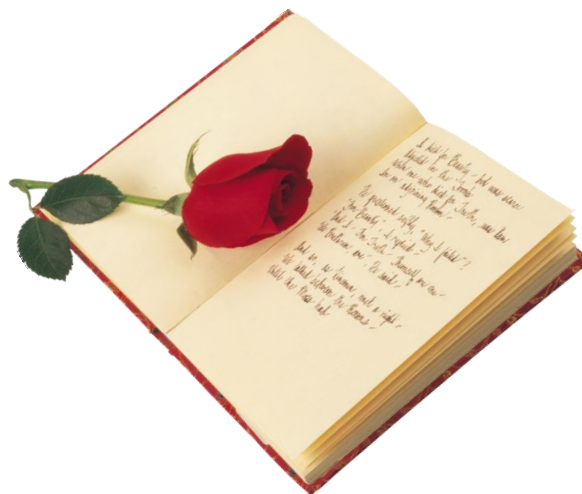 I died for Beauty – but was scarce
Adjusted in the Tomb
When one who died for Truth, was lain
In an adjoining Room –
He questioned softly, "Why I failed"?
"For Beauty", I replied –
"And I – for Truth – Themself are One –
We Brethren, are", He said –
And so, as Kinsmen, met a Night –
We talked between the Rooms –
Until the Moss had